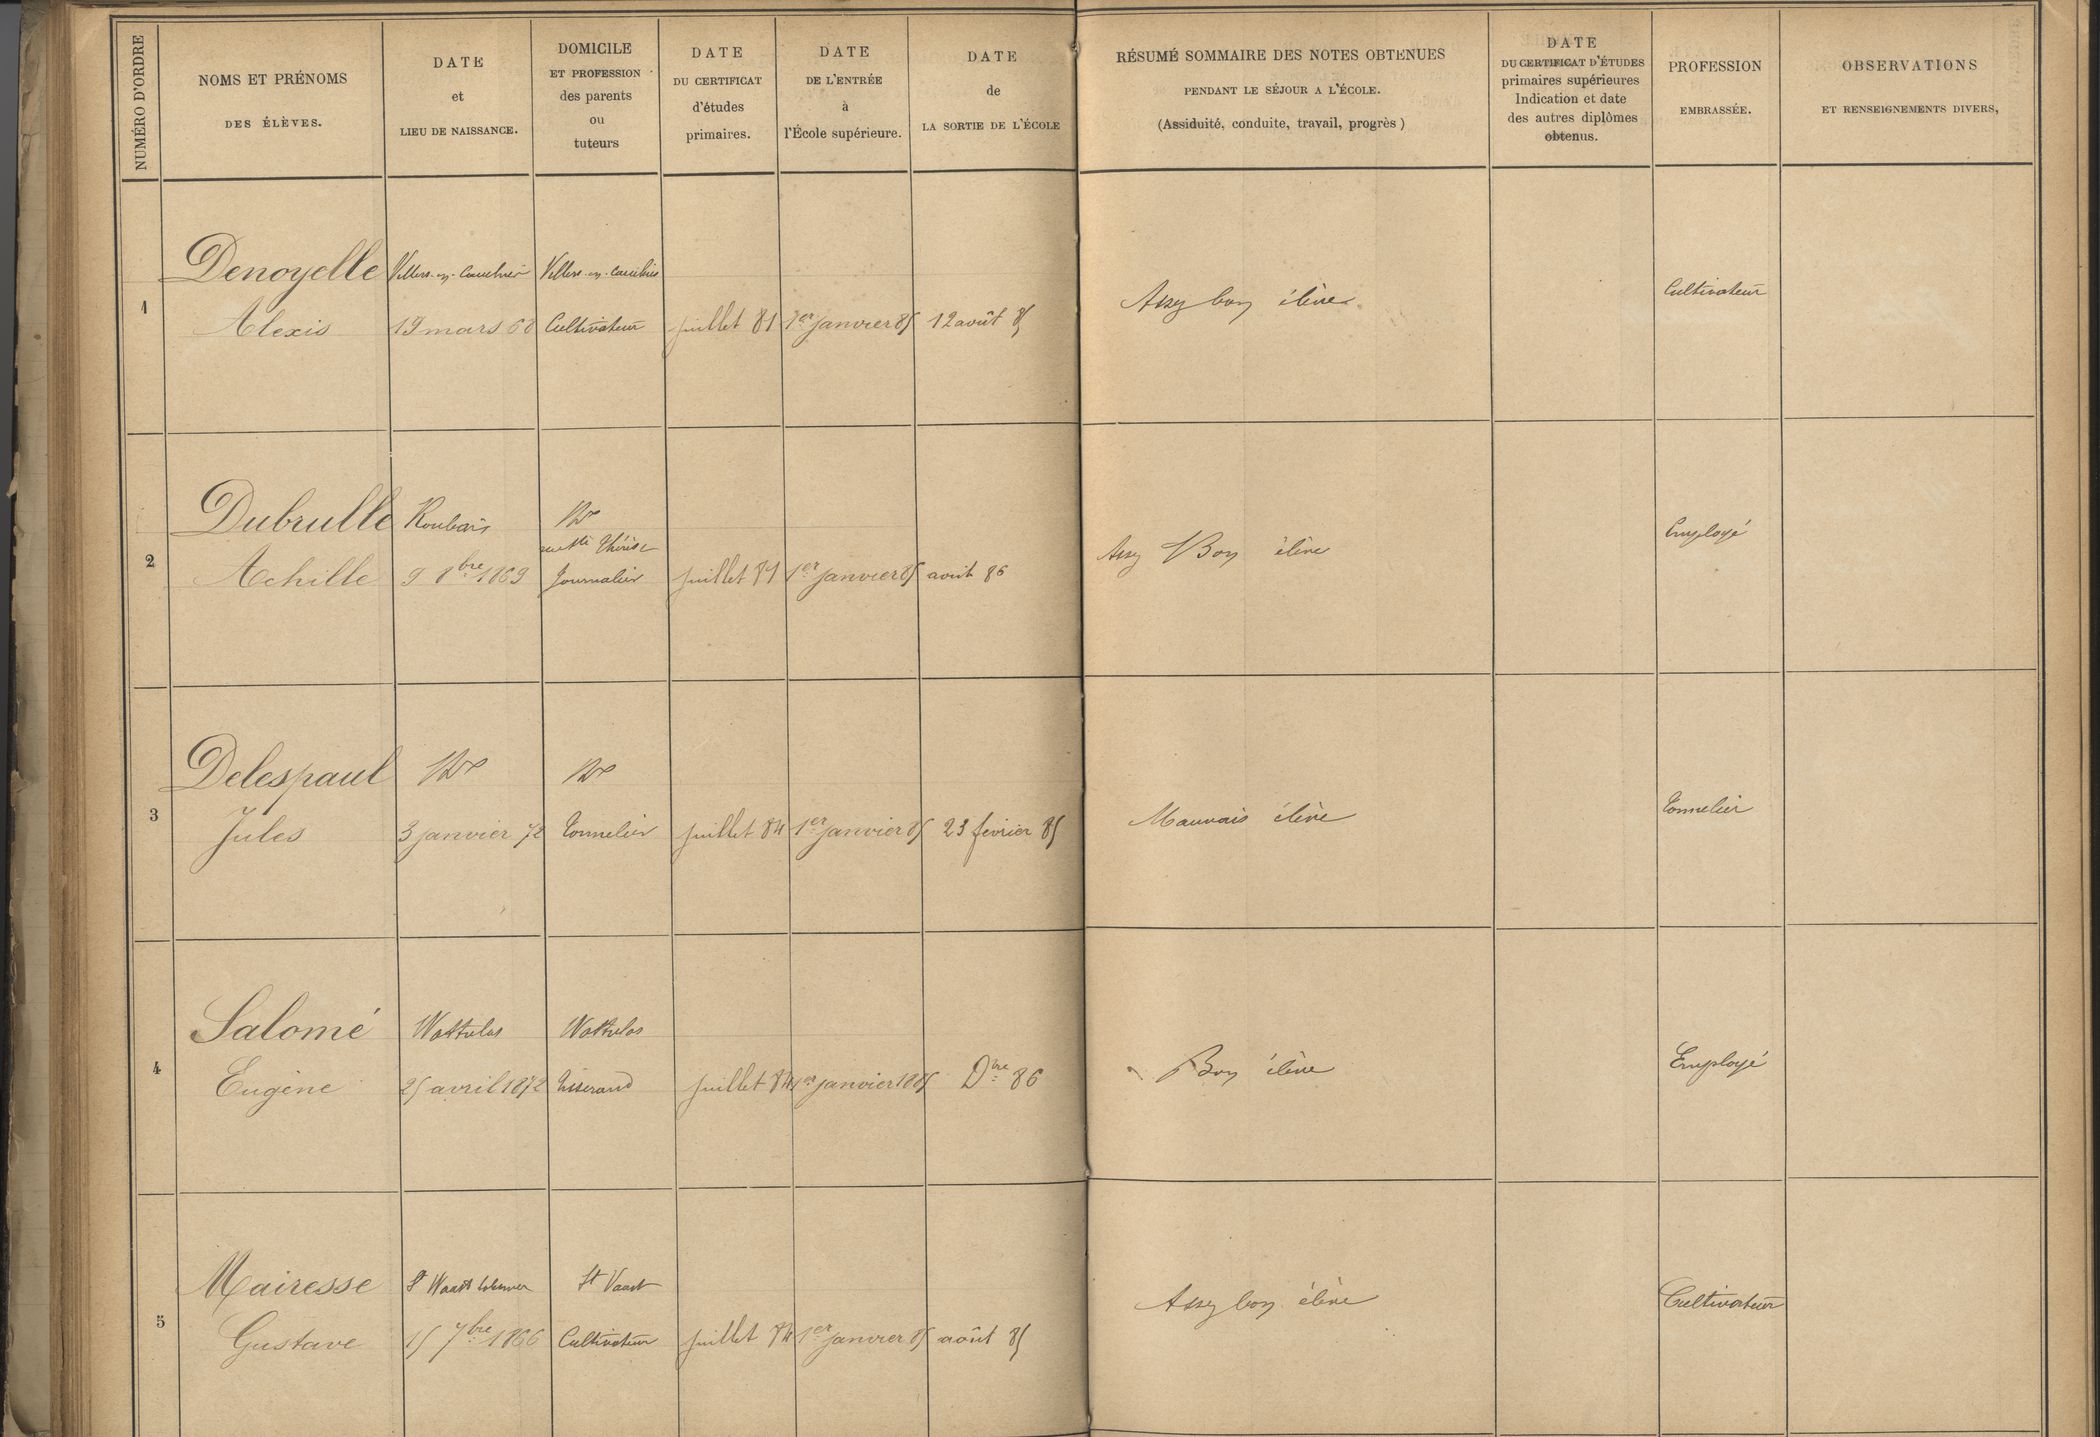 NUMÉRO D'ORDRE
NOMS ET PRÉNOMS
DES ÉLÈVES.
DATE
et
LIEU DE NAISSANCE.
DOMICILE
ET PROFESSION
des parents
ou
tuteurs
DATE
DU CERTIFICAT
d'études
primaires.
DATE
DE L'ENTRÉE
à
l'École supérieure.
DATE
de
LA SORTIE DE L'ÉCOLE
RÉSUMÉ SOMMAIRE DES NOTES OBTENUES
PENDANT LE SÉJOUR A L'ÉCOLE.
(Assiduité, conduite, travail, progrès)
DATE
DU CERTIFICAT D'ÉTUDES
primaires supérieures
Indication et date
des autres diplômes
obtenus.
PROFESSION
EMBRASSÉE.
OBSERVATIONS
ET RENSEIGNEMENTS DIVERS,
1
Denoyelle
Alexis
Villers-en-Cauchies
19 mars 68
Villers-en-Cauchies
Cultivateur
juillet 81
1er janvier 85
12 août 85
Assez bon élève
Cultivateur
2
Dubrulle
Achille
Roubaix
9 8bre 1869
Rx
rue Ste Thérèse
Journalier
juillet 81
1er janvier 85
août 86
Assez Bon élève
Employé
3
Delespaul
Jules
Rx
3 janvier 72
Rx
Tonnelier
juillet 84
1er janvier 85
23 février 85
Mauvais élève
Tonnelier
4
Salomé
Eugène
Wattrelos
25 avril 1872
Wattrelos
Tisserand
juillet 84
1er janvier 1885
Dbre 86
Bon élève
Employé
5
Mairesse
Gustave
St Waast
15 7bre 1866
St Vaast
Cultivateur
juillet 84
1er janvier 85
août 85
Assez bon élève
Cultivateur